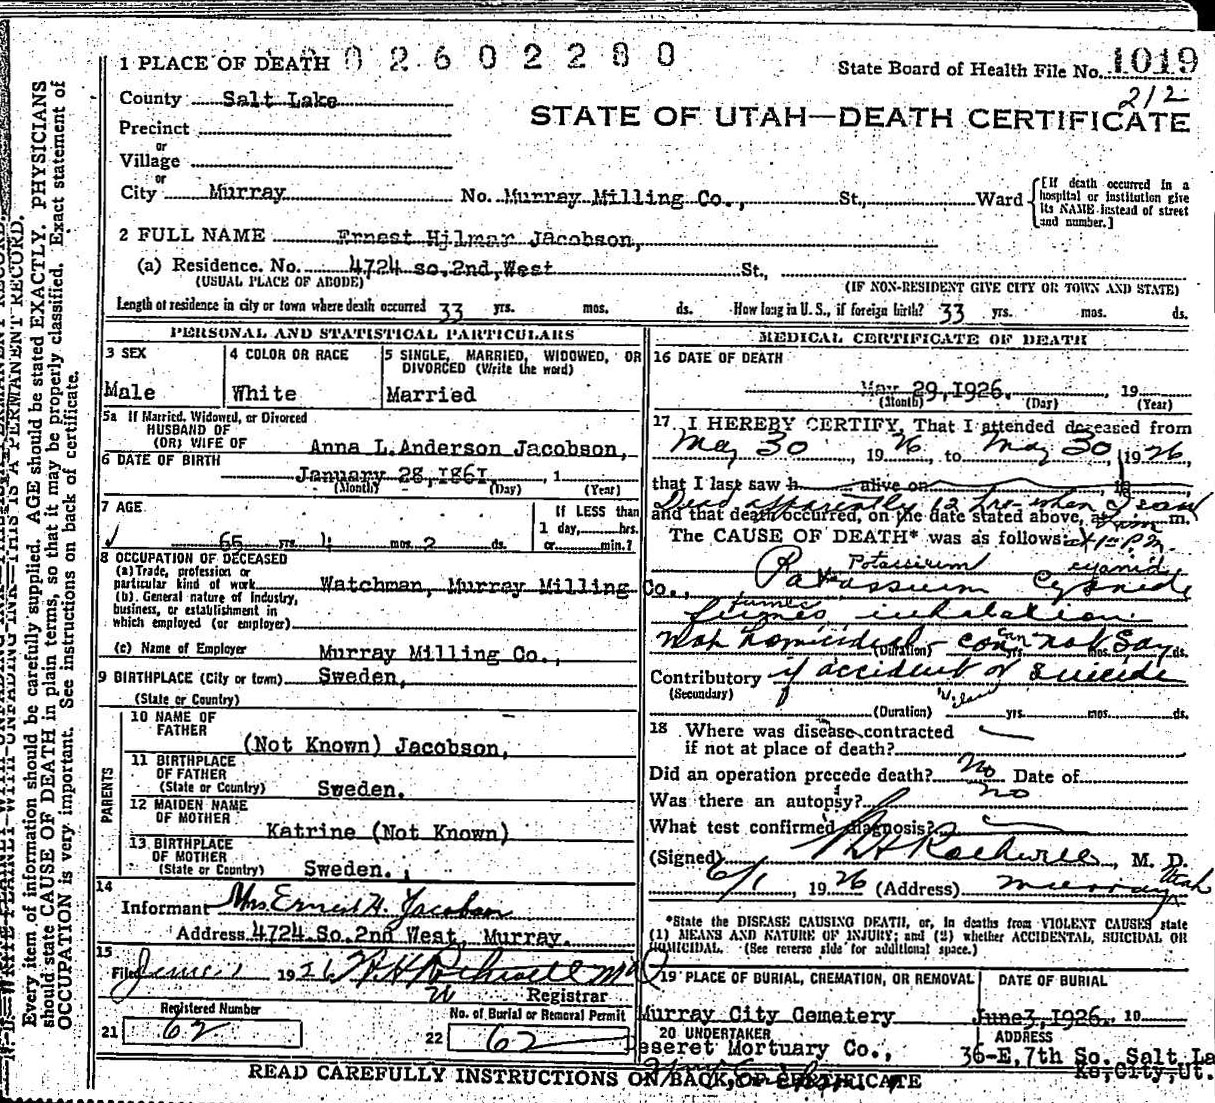 002602280
1 PLACE OF DEATH
State Board of Health File No. 1019
212
County Salt Lake
STATE OF UTAH—DEATH CERTIFICATE
Precinct
or
Village
or
City Murray No. Murray Milling Co., St., Ward
[If death occurred in a hospital or institution give its NAME instead of street and number.]
2 FULL NAME Ernest Hilmar Jacobson,
(a) Residence. No. 4724 so. 2nd, West St.,
(USUAL PLACE OF ABODE) (IF NON-RESIDENT GIVE CITY OR TOWN AND STATE)
Length of residence in city or town where death occurred 33 yrs. mos. ds. How long in U. S., if foreign birth? 33 yrs. mos. ds.
PERSONAL AND STATISTICAL PARTICULARS
3 SEX
Male
4 COLOR OR RACE
White
5 SINGLE, MARRIED, WIDOWED, OR
DIVORCED (Write the word)
Married
5a If Married, Widowed, or Divorced
HUSBAND OF
(OR) WIFE OF Anna L. Anderson Jacobson,
6 DATE OF BIRTH
January 28, 1861, 1
(Month) (Day) (Year)
7 AGE
65 yrs. mos. 2 ds.
If LESS than
1 day, hrs.
or min.?
8 OCCUPATION OF DECEASED
(a) Trade, profession or
particular kind of work Watchman, Murray Milling Co.,
(b). General nature of industry,
business, or establishment in
which employed (or employer)
(c) Name of Employer Murray Milling Co.,
9 BIRTHPLACE (City or town) Sweden,
(State or Country)
PARENTS
10 NAME OF
FATHER
(Not Known) Jacobson,
11 BIRTHPLACE
OF FATHER
(State or Country) Sweden.
12 MAIDEN NAME
OF MOTHER
Katrine (Not Known)
13 BIRTHPLACE
OF MOTHER
(State or Country) Sweden.
14
Informant Mrs Ernest H. Jacobson
Address 4724 So. 2nd West, Murray.
15
Filed June 1926 R H Rockwell MD
Registrar
Registered Number
21 62
No. of Burial or Removal Permit
22 62
MEDICAL CERTIFICATE OF DEATH
16 DATE OF DEATH
May 29, 1926. 19
(Month) (Day) (Year)
17 I HEREBY CERTIFY, That I attended deceased from
May 30, 1926, to May 30, 1926,
that I last saw h alive on 19
Dead apparently 12 hrs when I saw
and that death occurred, on the date stated above, at m.
The CAUSE OF DEATH* was as follows: at 1 P.M.
Potassium cyanide
Potassium Cyanide
fumes
fumes inhalation
Not homicidal - can not say
(Duration) yrs. mos. ds.
Contributory if accident or suicide
(Secondary)
(Duration) yrs. mos. ds.
18 Where was disease contracted
if not at place of death?
Did an operation precede death? No Date of
Was there an autopsy? no
What test confirmed diagnosis?
(Signed) R H Rockwell, M. D.
6/1, 1926 (Address) Murray Utah
*State the DISEASE CAUSING DEATH, or, in deaths from VIOLENT CAUSES state
(1) MEANS AND NATURE OF INJURY; and (2) whether ACCIDENTAL, SUICIDAL OR
HOMICIDAL. (See reverse side for additional space.)
19 PLACE OF BURIAL, CREMATION, OR REMOVAL
Murray City Cemetery
DATE OF BURIAL
June 3, 1926. 19
20 UNDERTAKER
Deseret Mortuary Co.,
ADDRESS
36-E, 7th So. Salt La
Ke, City, Ut.
READ CAREFULLY INSTRUCTIONS ON BACK OF CERTIFICATE
N. B.—WRITE PLAINLY WITH UNFADING INK—THIS IS A PERMANENT RECORD.
Every item of information should be carefully supplied. AGE should be stated EXACTLY. PHYSICIANS
should state CAUSE OF DEATH in plain terms, so that it may be properly classified. Exact statement of
OCCUPATION is very important. See instructions on back of certificate.